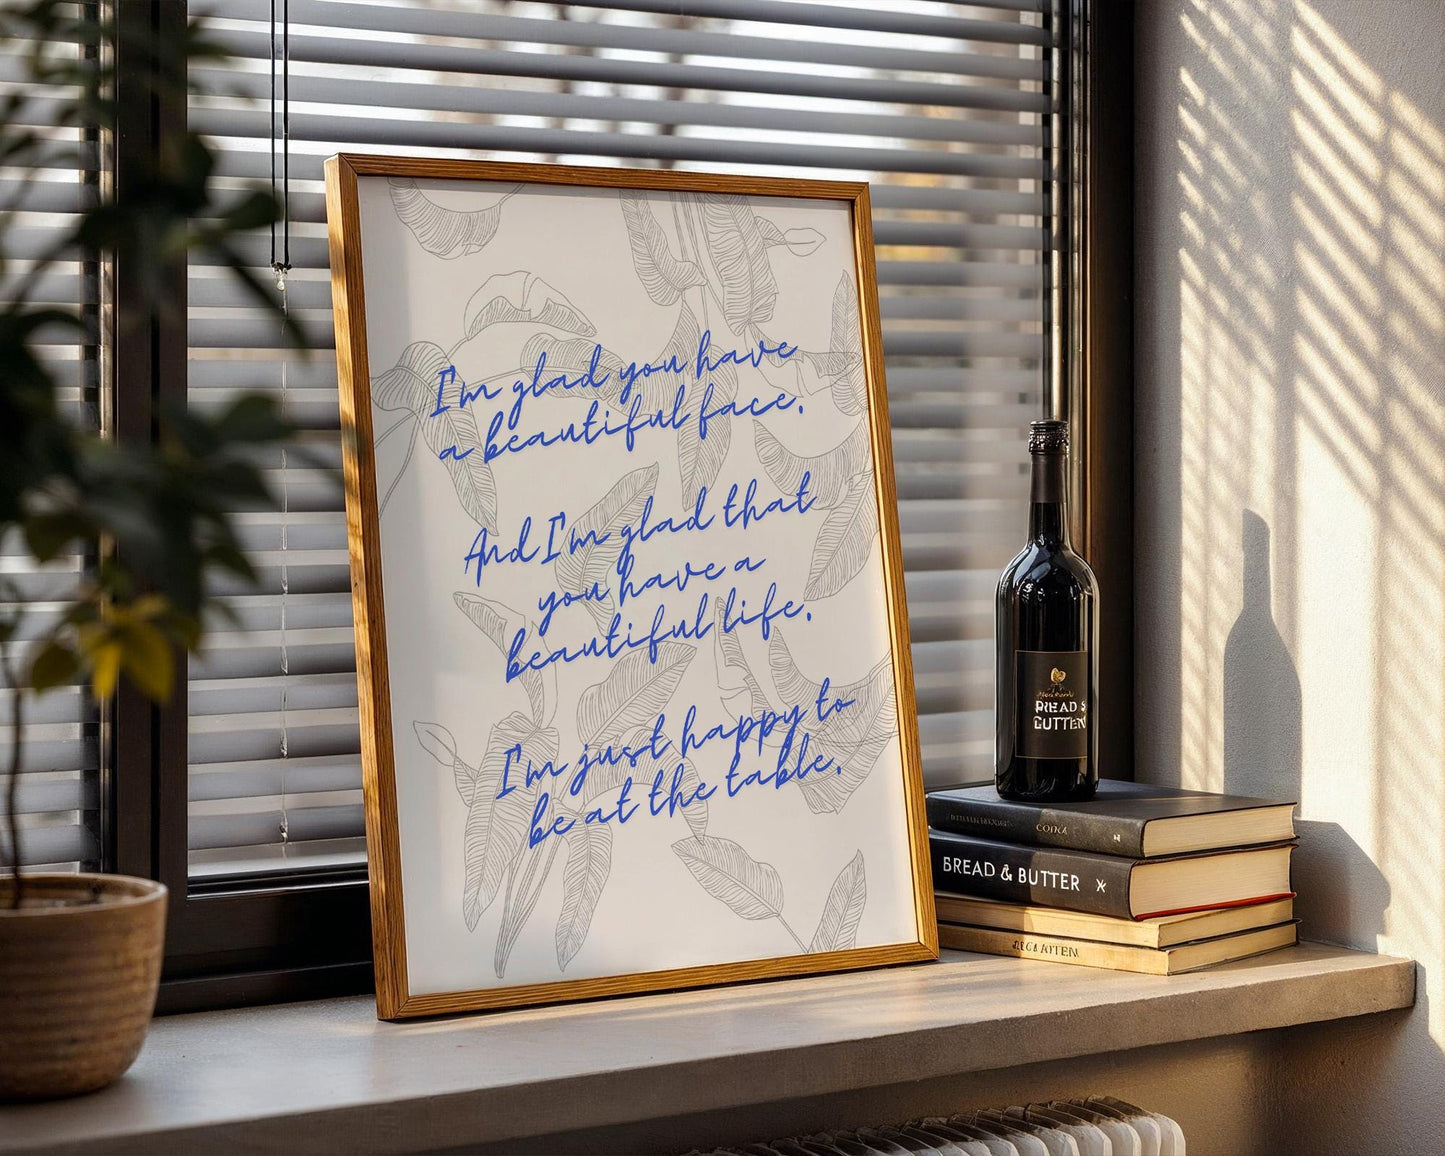 I'm glad you have
a beautiful face.
And I'm glad that
you have a
beautiful life.
I'm just happy to
be at the table.
BREAD & BUTTER